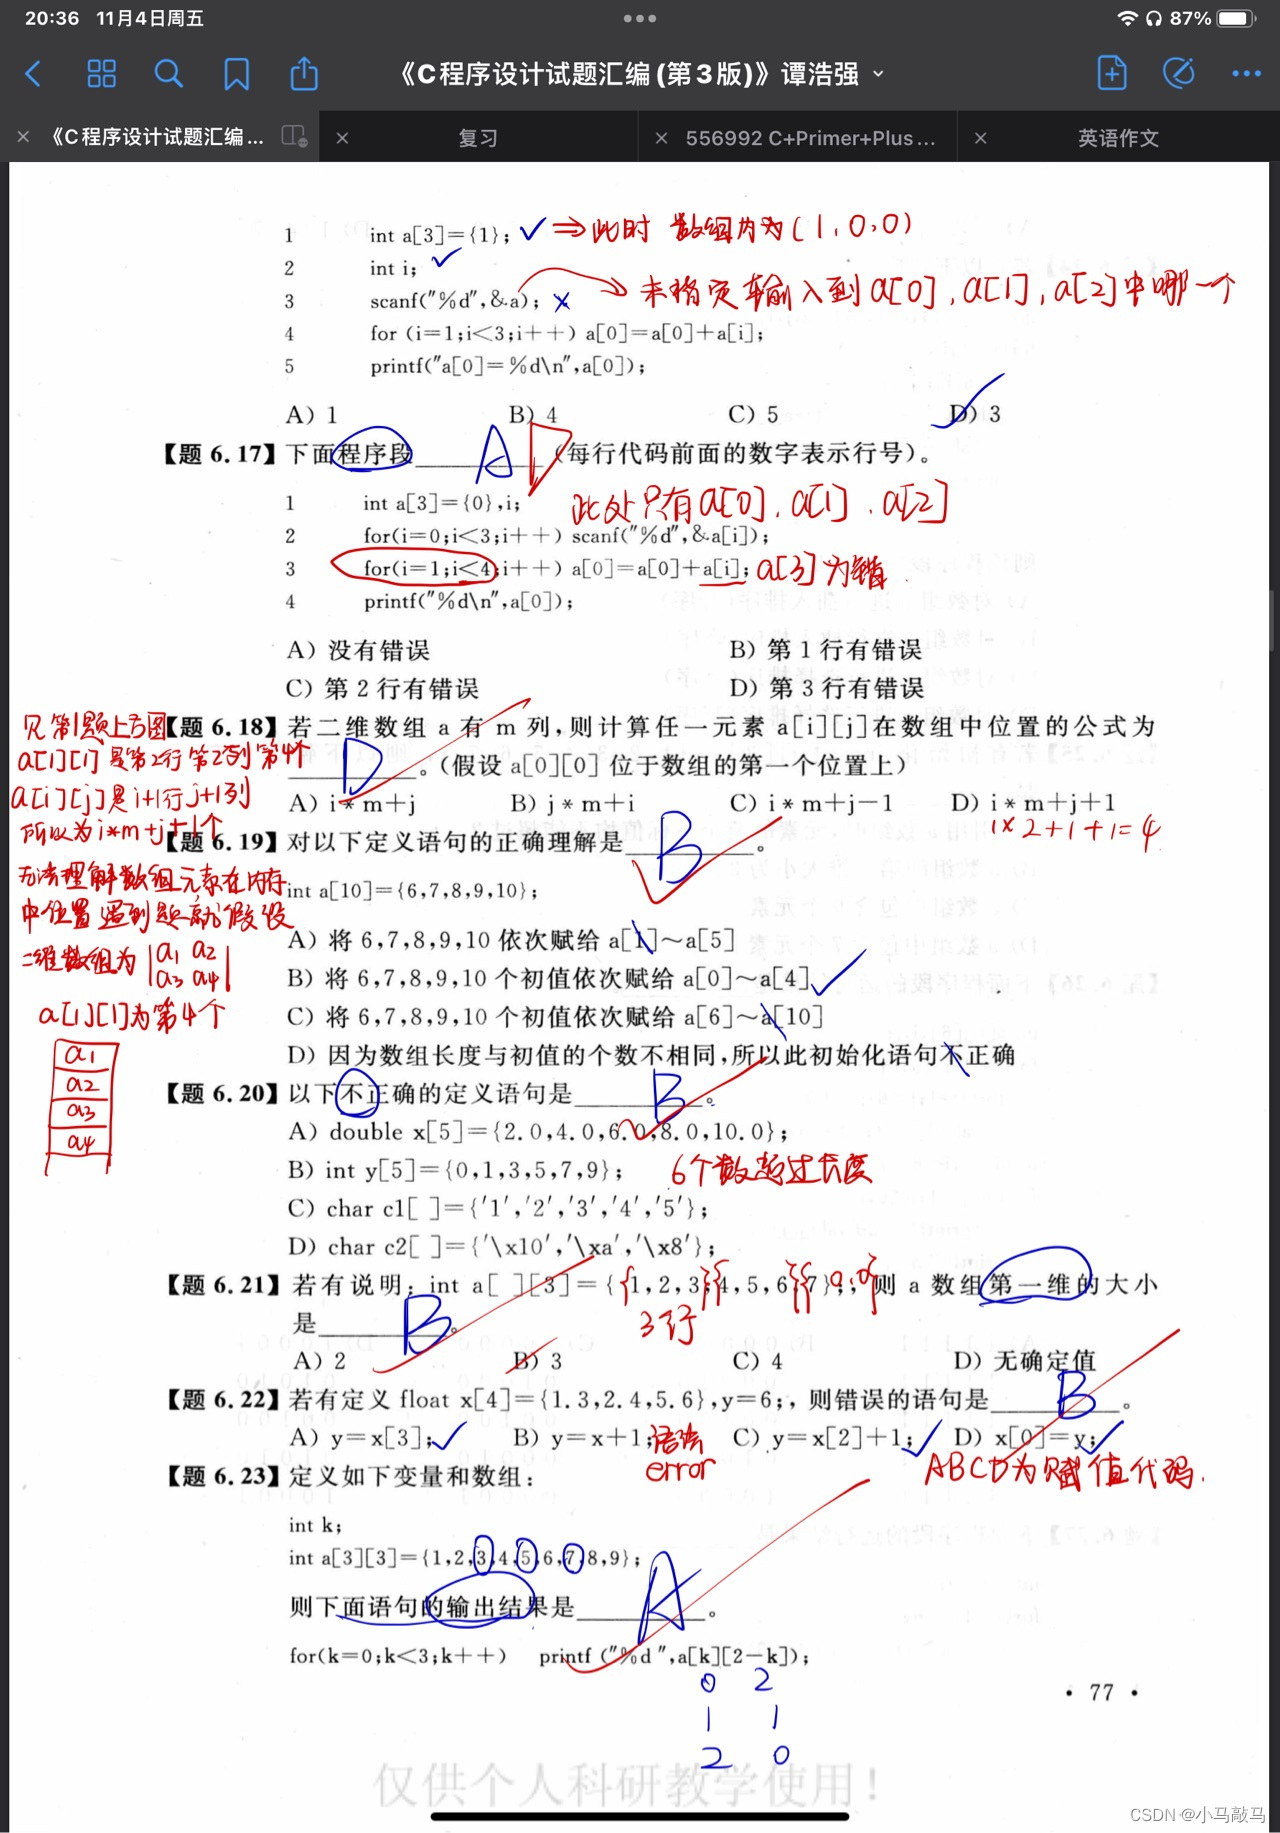 20:36 11月4日周五
87%
《C程序设计试题汇编(第3版)》谭浩强
《C程序设计试题汇编... 复习 556992 C+Primer+Plus... 英语作文
1 int a[3]={1}; ⇒此时 数组内为(1,0,0)
2 int i;
3 scanf("%d",&a); × 未指定输入到a[0],a[1],a[2]中哪一个
4 for (i=1;i<3;i++) a[0]=a[0]+a[i];
5 printf("a[0]=%d\n",a[0]);
A) 1 B) 4 C) 5 D) 3
【题 6.17】下面程序段________(每行代码前面的数字表示行号)。
A D
1 int a[3]={0},i;
此处只有a[0],a[1],a[2]
2 for(i=0;i<3;i++) scanf("%d",&a[i]);
3 for(i=1;i<4;i++) a[0]=a[0]+a[i]; a[3]为错
4 printf("%d\n",a[0]);
A) 没有错误 B) 第 1 行有错误
C) 第 2 行有错误 D) 第 3 行有错误
【题 6.18】若二维数组 a 有 m 列,则计算任一元素 a[i][j]在数组中位置的公式为
________。(假设 a[0][0] 位于数组的第一个位置上)
D
A) i*m+j B) j*m+i C) i*m+j-1 D) i*m+j+1
1×2+1+1=4
见第1题上方图
a[1][1]是第2行第2列第4个
a[i][j]是i+1行j+1列
所以为i*m+j+1个
无法理解数组元素在内存
中位置遇到题就假设
二维数组为 |a1 a2
a3 a4|
a[1][1]为第4个
a1
a2
a3
a4
【题 6.19】对以下定义语句的正确理解是________。
B
int a[10]={6,7,8,9,10};
A) 将 6,7,8,9,10 依次赋给 a[1]~a[5]
B) 将 6,7,8,9,10 个初值依次赋给 a[0]~a[4]
C) 将 6,7,8,9,10 个初值依次赋给 a[6]~a[10]
D) 因为数组长度与初值的个数不相同,所以此初始化语句不正确
【题 6.20】以下不正确的定义语句是________。
B
A) double x[5]={2.0,4.0,6.0,8.0,10.0};
B) int y[5]={0,1,3,5,7,9}; 6个数超过长度
C) char c1[ ]={'1','2','3','4','5'};
D) char c2[ ]={'\x10','\xa','\x8'};
【题 6.21】若有说明:int a[ ][3]={1,2,3,4,5,6,7};,则 a 数组第一维的大小
0,0
是________。 B 3行
A) 2 B) 3 C) 4 D) 无确定值
【题 6.22】若有定义 float x[4]={1.3,2.4,5.6},y=6;,则错误的语句是________。
B
A) y=x[3]; B) y=x+1; C) y=x[2]+1; D) x[0]=y;
语法
error
ABCD为赋值代码.
【题 6.23】定义如下变量和数组:
int k;
int a[3][3]={1,2,3,4,5,6,7,8,9};
则下面语句的输出结果是________。
A
for(k=0;k<3;k++) printf ("%d ",a[k][2-k]);
0 2
1 1
2 0
· 77 ·
仅供个人科研教学使用!
CSDN @小马敲马